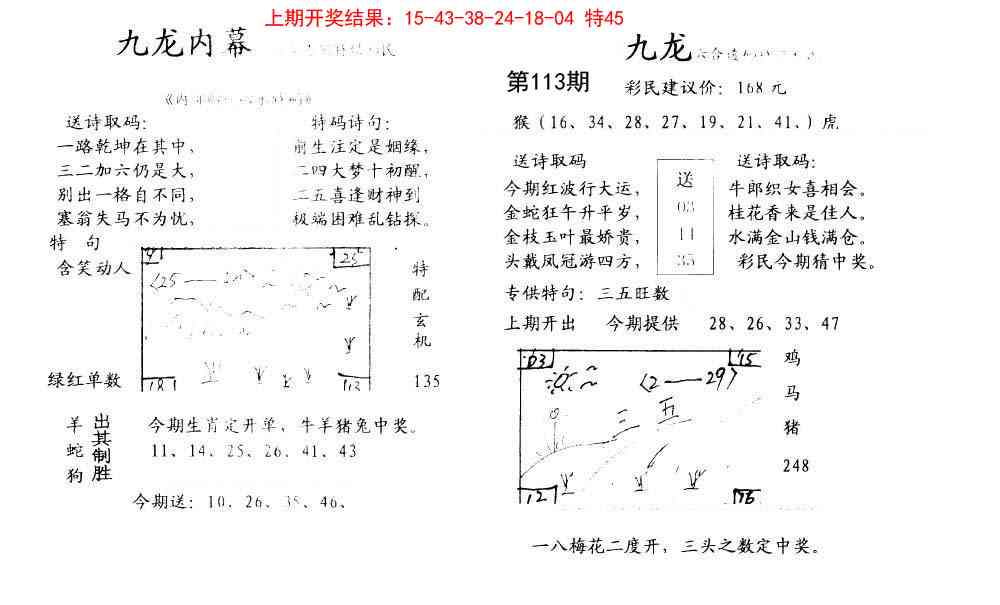 上期开奖结果：15-43-38-24-18-04 特45
九龙内幕
送诗取码：
一路乾坤在其中，
三二加六仍是大，
别出一格自不同，
塞翁失马不为忧，
特码诗句：
前生注定是姻缘，
二四大梦十初醒，
二五喜逢财神到
极端困难乱钻探。
特 句
含笑动人
绿红单数
9
23
25
18
113
特配玄机
135
羊
蛇
狗
出其制胜
今期生肖定开单，牛羊猪兔中奖。
11、14、25、26、41、43
今期送：10、26、35、46、
九龙
第113期
彩民建议价：168元
猴（16、34、28、27、19、21、41、）虎
送诗取码
今期红波行大运，
金蛇狂午升平岁，
金枝玉叶最娇贵，
头戴凤冠游四方，
送
03
11
35
送诗取码：
牛郎织女喜相会。
桂花香来是佳人。
水满金山钱满仓。
彩民今期猜中奖。
专供特句：三五旺数
上期开出 今期提供 28、26、33、47
03
15
〈2——29〉
三五
12
鸡
马
猪
248
一八梅花二度开，三头之数定中奖。